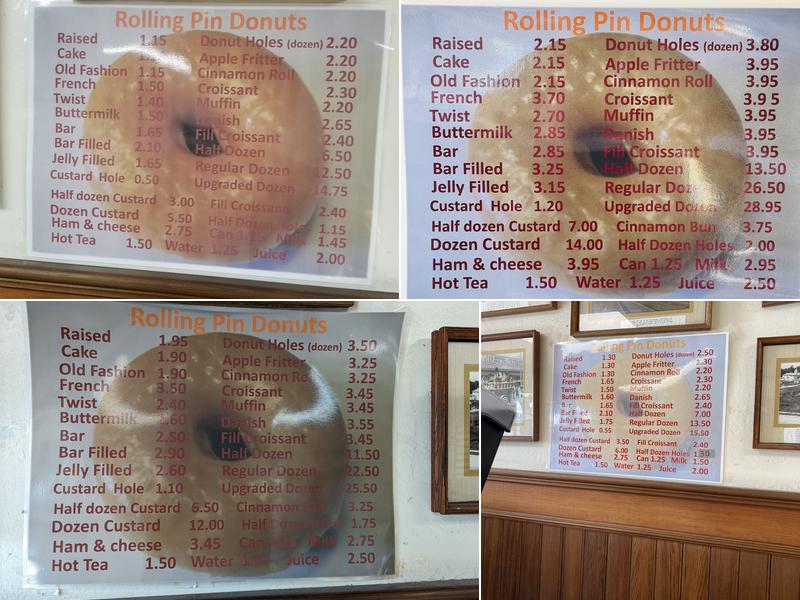 Rolling Pin Donuts
Raised 1.15 Donut Holes (dozen) 2.20
Cake Apple Fritter 2.20
Old Fashion 1.15 Cinnamon Roll 2.20
French 1.50 Croissant 2.30
Twist 1.40 Muffin 2.20
Buttermilk 1.50 Danish 2.65
Bar 1.65 Fill Croissant 2.40
Bar Filled 2.10 Half Dozen 6.50
Jelly Filled 1.65 Regular Dozen 12.50
Custard Hole 0.50 Upgraded Dozen 14.75
Half dozen Custard 3.00 Fill Croissant 2.40
Dozen Custard 5.50 Half Dozen Holes 1.15
Ham & cheese 2.75 Can 1.25 Milk 1.45
Hot Tea 1.50 Water 1.25 Juice 2.00
Rolling Pin Donuts
Raised 2.15 Donut Holes (dozen) 3.80
Cake 2.15 Apple Fritter 3.95
Old Fashion 2.15 Cinnamon Roll 3.95
French 3.70 Croissant 3.9 5
Twist 2.70 Muffin 3.95
Buttermilk 2.85 Danish 3.95
Bar 2.85 Fill Croissant 3.95
Bar Filled 3.25 Half Dozen 13.50
Jelly Filled 3.15 Regular Dozen 26.50
Custard Hole 1.20 Upgraded Dozen 28.95
Half dozen Custard 7.00 Cinnamon Bun 3.75
Dozen Custard 14.00 Half Dozen Holes 2.00
Ham & cheese 3.95 Can 1.25 Milk 2.95
Hot Tea 1.50 Water 1.25 Juice 2.50
Rolling Pin Donuts
Raised 1.95 Donut Holes (dozen) 3.50
Cake 1.90 Apple Fritter 3.25
Old Fashion 1.90 Cinnamon Roll 3.25
French 3.50 Croissant 3.45
Twist 2.40 Muffin 3.45
Buttermilk 2.60 Danish 3.55
Bar 2.50 Fill Croissant 3.45
Bar Filled 2.90 Half Dozen 11.50
Jelly Filled 2.60 Regular Dozen 22.50
Custard Hole 1.10 Upgraded Dozen 25.50
Half dozen Custard 6.50 Cinnamon Bun 3.25
Dozen Custard 12.00 Half Dozen Holes 1.75
Ham & cheese 3.45 Can 1.25 Milk 2.75
Hot Tea 1.50 Water 1.25 Juice 2.50
Rolling Pin Donuts
Raised 1.30 Donut Holes (dozen) 2.50
Cake 1.30 Apple Fritter 2.30
Old Fashion 1.30 Cinnamon Roll 2.20
French 1.65 Croissant 2.30
Twist 1.50 Muffin 2.20
Buttermilk 1.60 Danish 2.65
Bar 1.65 Fill Croissant 2.40
Bar Filled 2.10 Half Dozen 7.00
Jelly Filled 1.75 Regular Dozen 13.50
Custard Hole 0.55 Upgraded Dozen 15.50
Half dozen Custard 3.50 Fill Croissant 2.40
Dozen Custard 6.00 Half Dozen Holes 1.30
Ham & cheese 2.75 Can 1.25 Milk 1.50
Hot Tea 1.50 Water 1.25 Juice 2.00